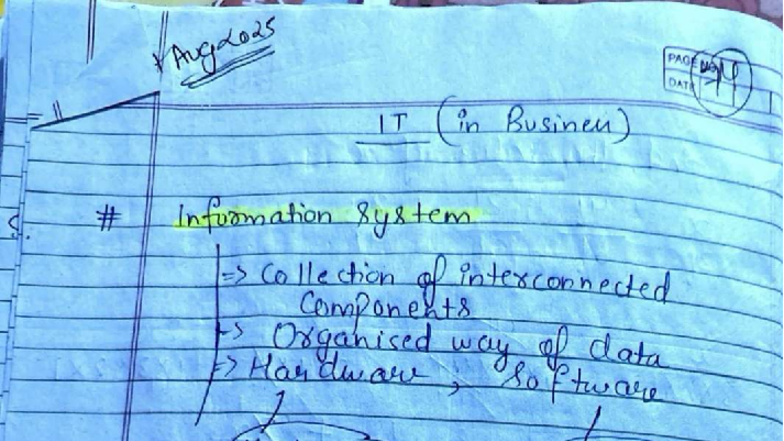 Aug 2025
PAGE
DATE
IT (in Business)
# Information System
=> Collection of interconnected
Components
=> Organised way of data
=> Hardware, Software